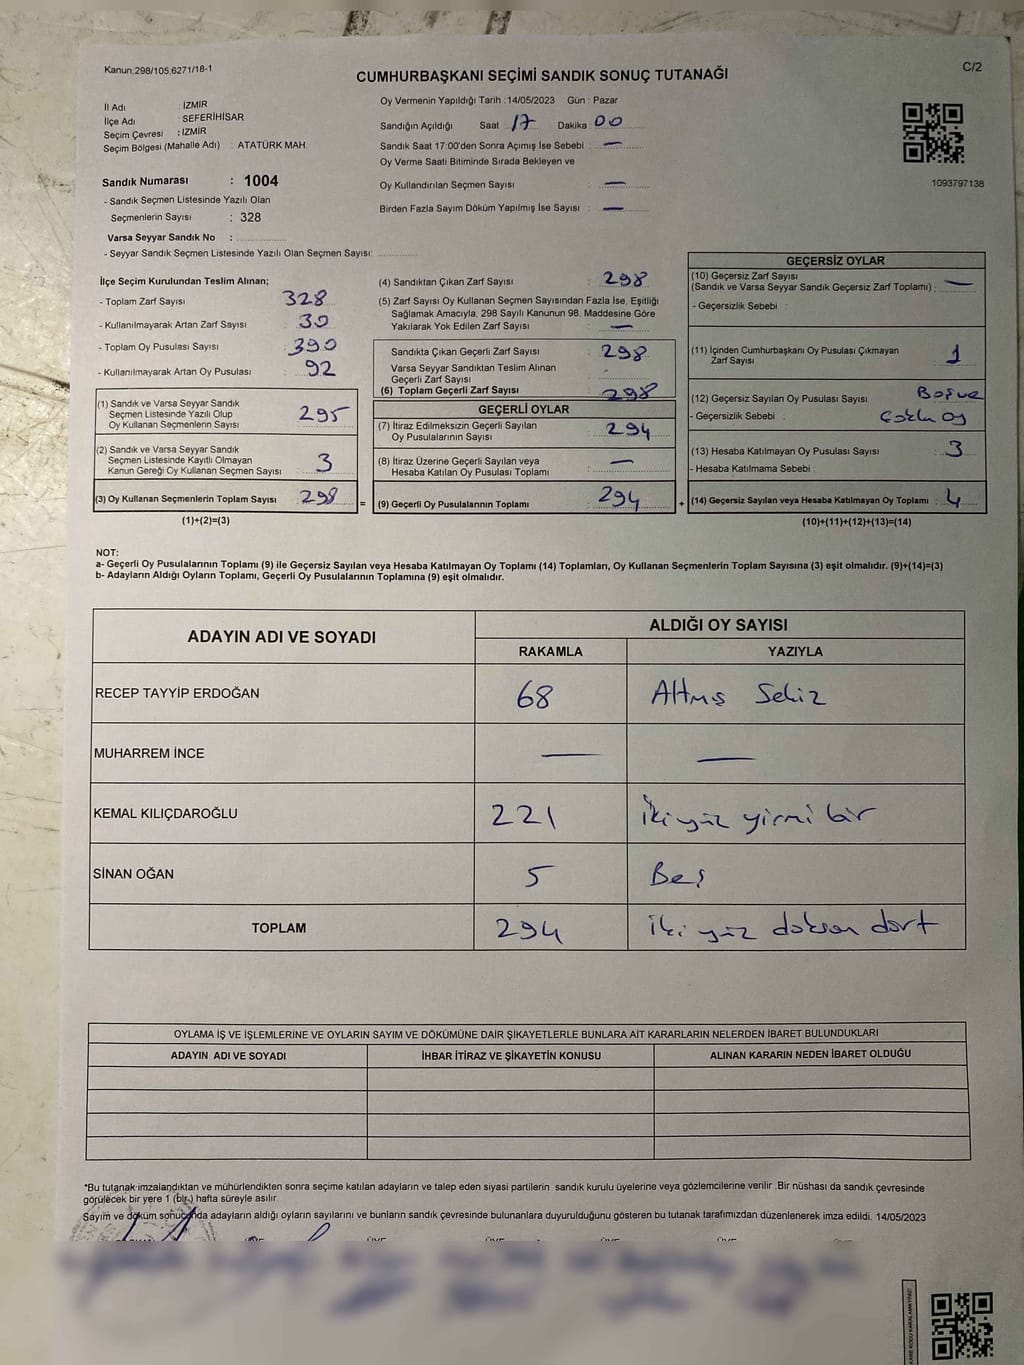 Kanun;298/105,6271/18-1
C/2
CUMHURBAŞKANI SEÇİMİ SANDIK SONUÇ TUTANAĞI
İl Adı : İZMİR
İlçe Adı : SEFERİHİSAR
Seçim Çevresi : İZMİR
Seçim Bölgesi (Mahalle Adı) : ATATÜRK MAH.
Sandık Numarası : 1004
- Sandık Seçmen Listesinde Yazılı Olan
Seçmenlerin Sayısı : 328
Varsa Seyyar Sandık No :
- Seyyar Sandık Seçmen Listesinde Yazılı Olan Seçmen Sayısı:
Oy Vermenin Yapıldığı Tarih : 14/05/2023 Gün : Pazar
Sandığın Açıldığı Saat 17 Dakika 00
Sandık Saat 17:00'den Sonra Açımış İse Sebebi : —
Oy Verme Saati Bitiminde Sırada Bekleyen ve
Oy Kullandırılan Seçmen Sayısı : —
Birden Fazla Sayım Döküm Yapılmış İse Sayısı : —
1093797138
İlçe Seçim Kurulundan Teslim Alınan;
- Toplam Zarf Sayısı : 328
- Kullanılmayarak Artan Zarf Sayısı : 30
- Toplam Oy Pusulası Sayısı : 390
- Kullanılmayarak Artan Oy Pusulası : 92
(1) Sandık ve Varsa Seyyar Sandık
Seçmen Listesinde Yazılı Olup
Oy Kullanan Seçmenlerin Sayısı : 295
(2) Sandık ve Varsa Seyyar Sandık
Seçmen Listesinde Kayıtlı Olmayan
Kanun Gereği Oy Kullanan Seçmen Sayısı : 3
(3) Oy Kullanan Seçmenlerin Toplam Sayısı : 298
(1)+(2)=(3)
(4) Sandıktan Çıkan Zarf Sayısı : 298
(5) Zarf Sayısı Oy Kullanan Seçmen Sayısından Fazla İse, Eşitliği
Sağlamak Amacıyla, 298 Sayılı Kanunun 98. Maddesine Göre
Yakılarak Yok Edilen Zarf Sayısı : —
Sandıkta Çıkan Geçerli Zarf Sayısı : 298
Varsa Seyyar Sandıktan Teslim Alınan
Geçerli Zarf Sayısı :
(6) Toplam Geçerli Zarf Sayısı : 298
GEÇERLİ OYLAR
(7) İtiraz Edilmeksizin Geçerli Sayılan
Oy Pusulalarının Sayısı : 294
(8) İtiraz Üzerine Geçerli Sayılan veya
Hesaba Katılan Oy Pusulası Toplamı : —
= (9) Geçerli Oy Pusulalarının Toplamı : 294 +
GEÇERSİZ OYLAR
(10) Geçersiz Zarf Sayısı
(Sandık ve Varsa Seyyar Sandık Geçersiz Zarf Toplamı) : —
- Geçersizlik Sebebi :
(11) İçinden Cumhurbaşkanı Oy Pusulası Çıkmayan
Zarf Sayısı : 1
(12) Geçersiz Sayılan Oy Pusulası Sayısı : Boş ve
- Geçersizlik Sebebi : Çoklu oy
(13) Hesaba Katılmayan Oy Pusulası Sayısı : 3
- Hesaba Katılmama Sebebi :
(14) Geçersiz Sayılan veya Hesaba Katılmayan Oy Toplamı : 4
(10)+(11)+(12)+(13)=(14)
NOT:
a- Geçerli Oy Pusulalarının Toplamı (9) ile Geçersiz Sayılan veya Hesaba Katılmayan Oy Toplamı (14) Toplamları, Oy Kullanan Seçmenlerin Toplam Sayısına (3) eşit olmalıdır. (9)+(14)=(3)
b- Adayların Aldığı Oyların Toplamı, Geçerli Oy Pusulalarının Toplamına (9) eşit olmalıdır.
ADAYIN ADI VE SOYADI
ALDIĞI OY SAYISI
RAKAMLA YAZIYLA
RECEP TAYYİP ERDOĞAN 68 Altmış Sekiz
MUHARREM İNCE — —
KEMAL KILIÇDAROĞLU 221 İki yüz yirmi bir
SİNAN OĞAN 5 Beş
TOPLAM 294 iki yüz doksan dört
OYLAMA İŞ VE İŞLEMLERİNE VE OYLARIN SAYIM VE DÖKÜMÜNE DAİR ŞİKAYETLERLE BUNLARA AİT KARARLARIN NELERDEN İBARET BULUNDUKLARI
ADAYIN ADI VE SOYADI İHBAR İTİRAZ VE ŞİKAYETİN KONUSU ALINAN KARARIN NEDEN İBARET OLDUĞU
*Bu tutanak imzalandıktan ve mühürlendikten sonra seçime katılan adayların ve talep eden siyasi partilerin sandık kurulu üyelerine veya gözlemcilerine verilir .Bir nüshası da sandık çevresinde
görülecek bir yere 1 (bir) hafta süreyle asılır.
Sayım ve döküm sonucunda adayların aldığı oyların sayılarını ve bunların sandık çevresinde bulunanlara duyurulduğunu gösteren bu tutanak tarafımızdan düzenlenerek imza edildi. 14/05/2023